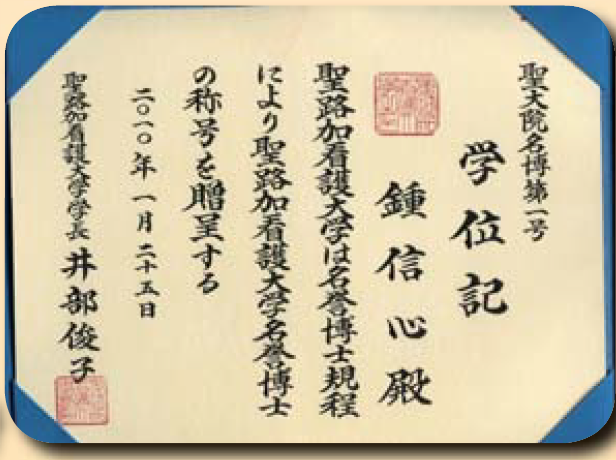 聖大院名博第一号
学位記
鍾信心殿
聖路加看護大学は名誉博士規程
により聖路加看護大学名誉博士
の称号を贈呈する
二〇一〇年一月二十五日
聖路加看護大学学長 井部俊子